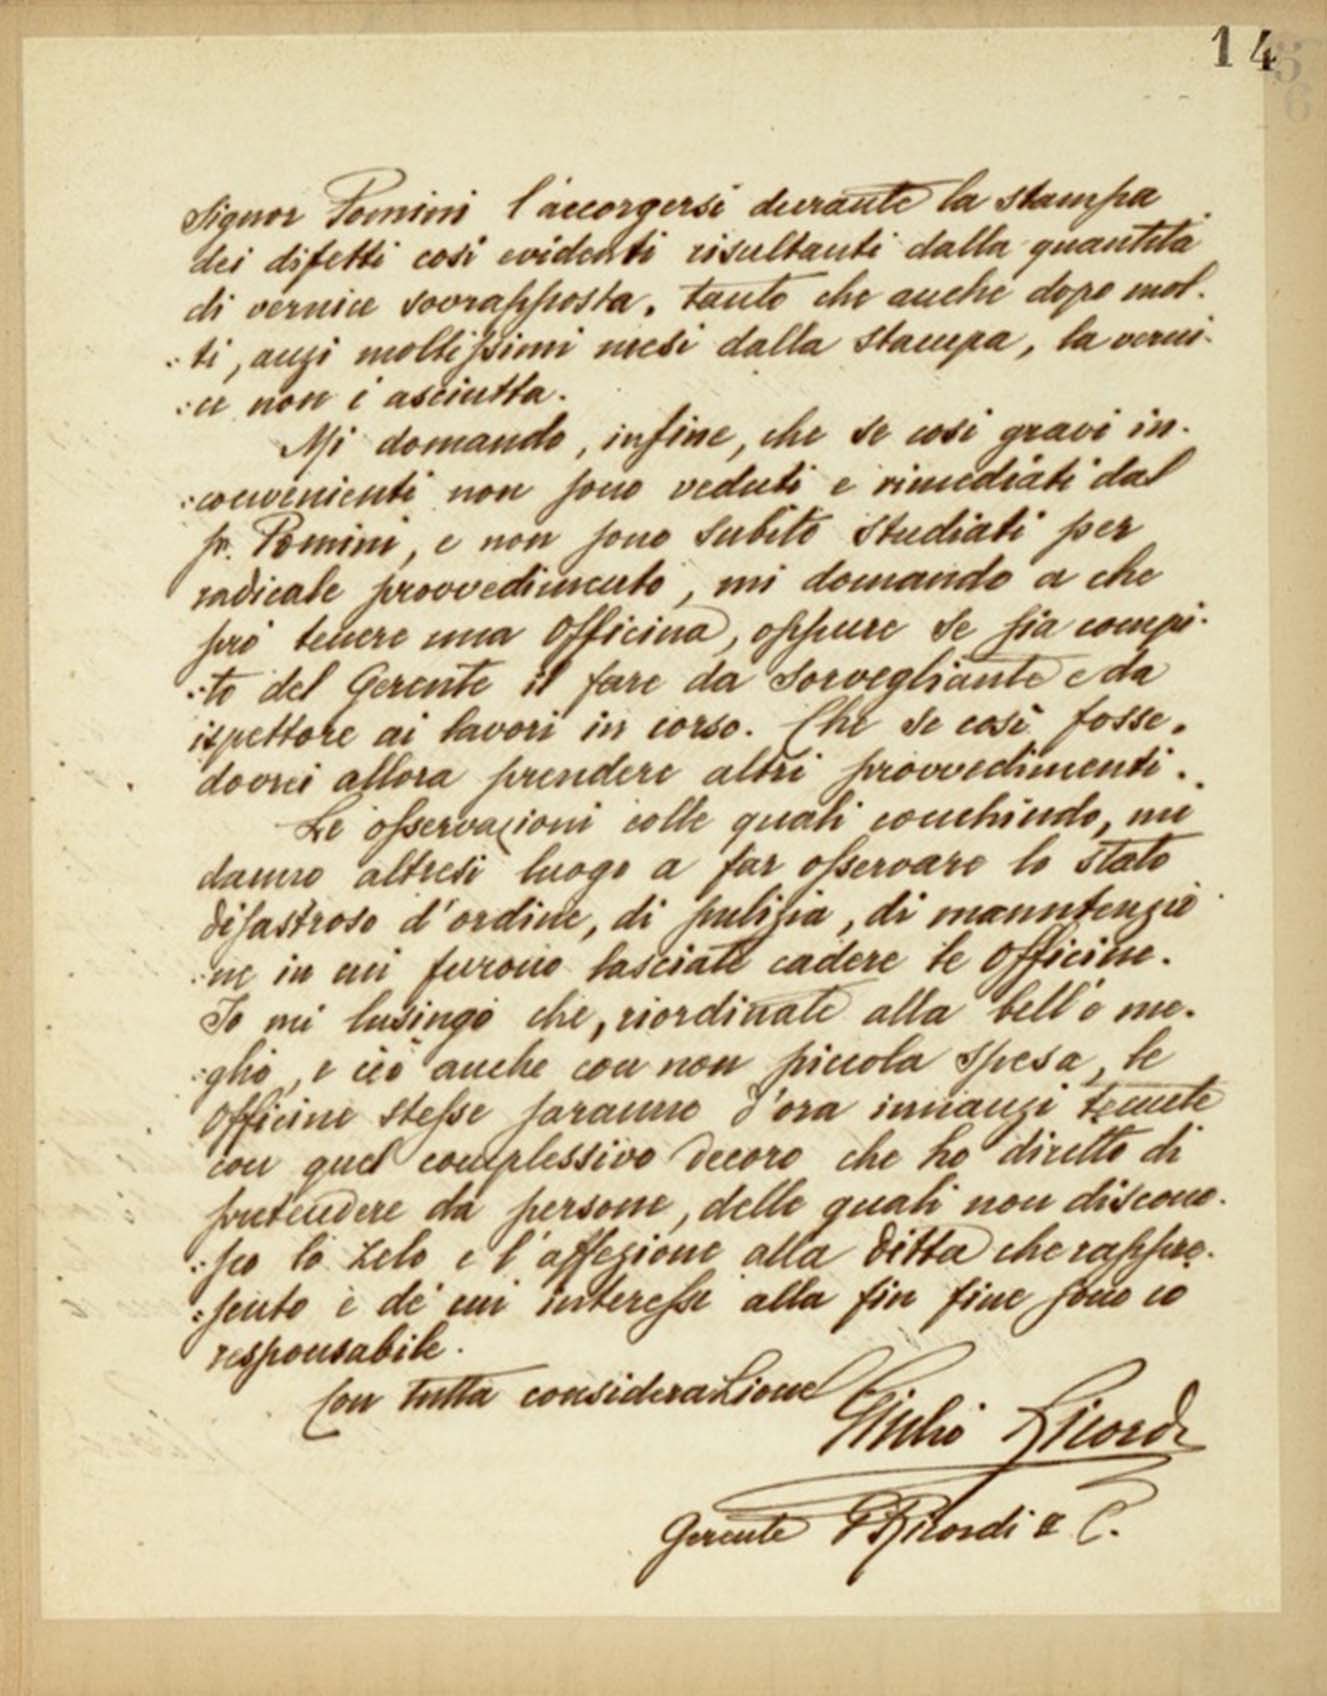 14
5
6
Signor Pomini l'accorgersi durante la stampa
dei difetti così evidenti risultanti dalla quantità
di vernice sovrapposta, tanto che anche dopo mol-
:ti, anzi moltissimi mesi dalla stampa, la verni-
:ce non è asciutta.
Mi domando, infine, che se così gravi in-
:convenienti non sono veduti e rimediati dal
sr. Pomini, e non sono subito studiati per
radicale provvedimento, mi domando a che
prò tenere una Officina, oppure se sia compi-
:to del Gerente il fare da sorvegliante e da
ispettore ai lavori in corso. Che se così fosse,
dovrei allora prendere altri provvedimenti.
Le osservazioni colle quali conchiudo, mi
danno altresì luogo a far osservare lo stato
disastroso d'ordine, di pulizia, di manntenzio
:ne in cui furono lasciate cadere le Officine.
Io mi lusingo che, riordinate alla bell'o me-
:glio, e ciò anche con non piccola spesa, le
Officine stesse saranno d'ora innanzi tenute
con quel complessivo decoro che ho diritto di
pretendere da persone, delle quali non discono-
:sco lo zelo e l'affezione alla Ditta che rappre-
:sento e de' cui interessi alla fin fine sono io
responsabile.
Con tutta considerazione
Giulio Ricordi
Gerente G Ricordi & C.